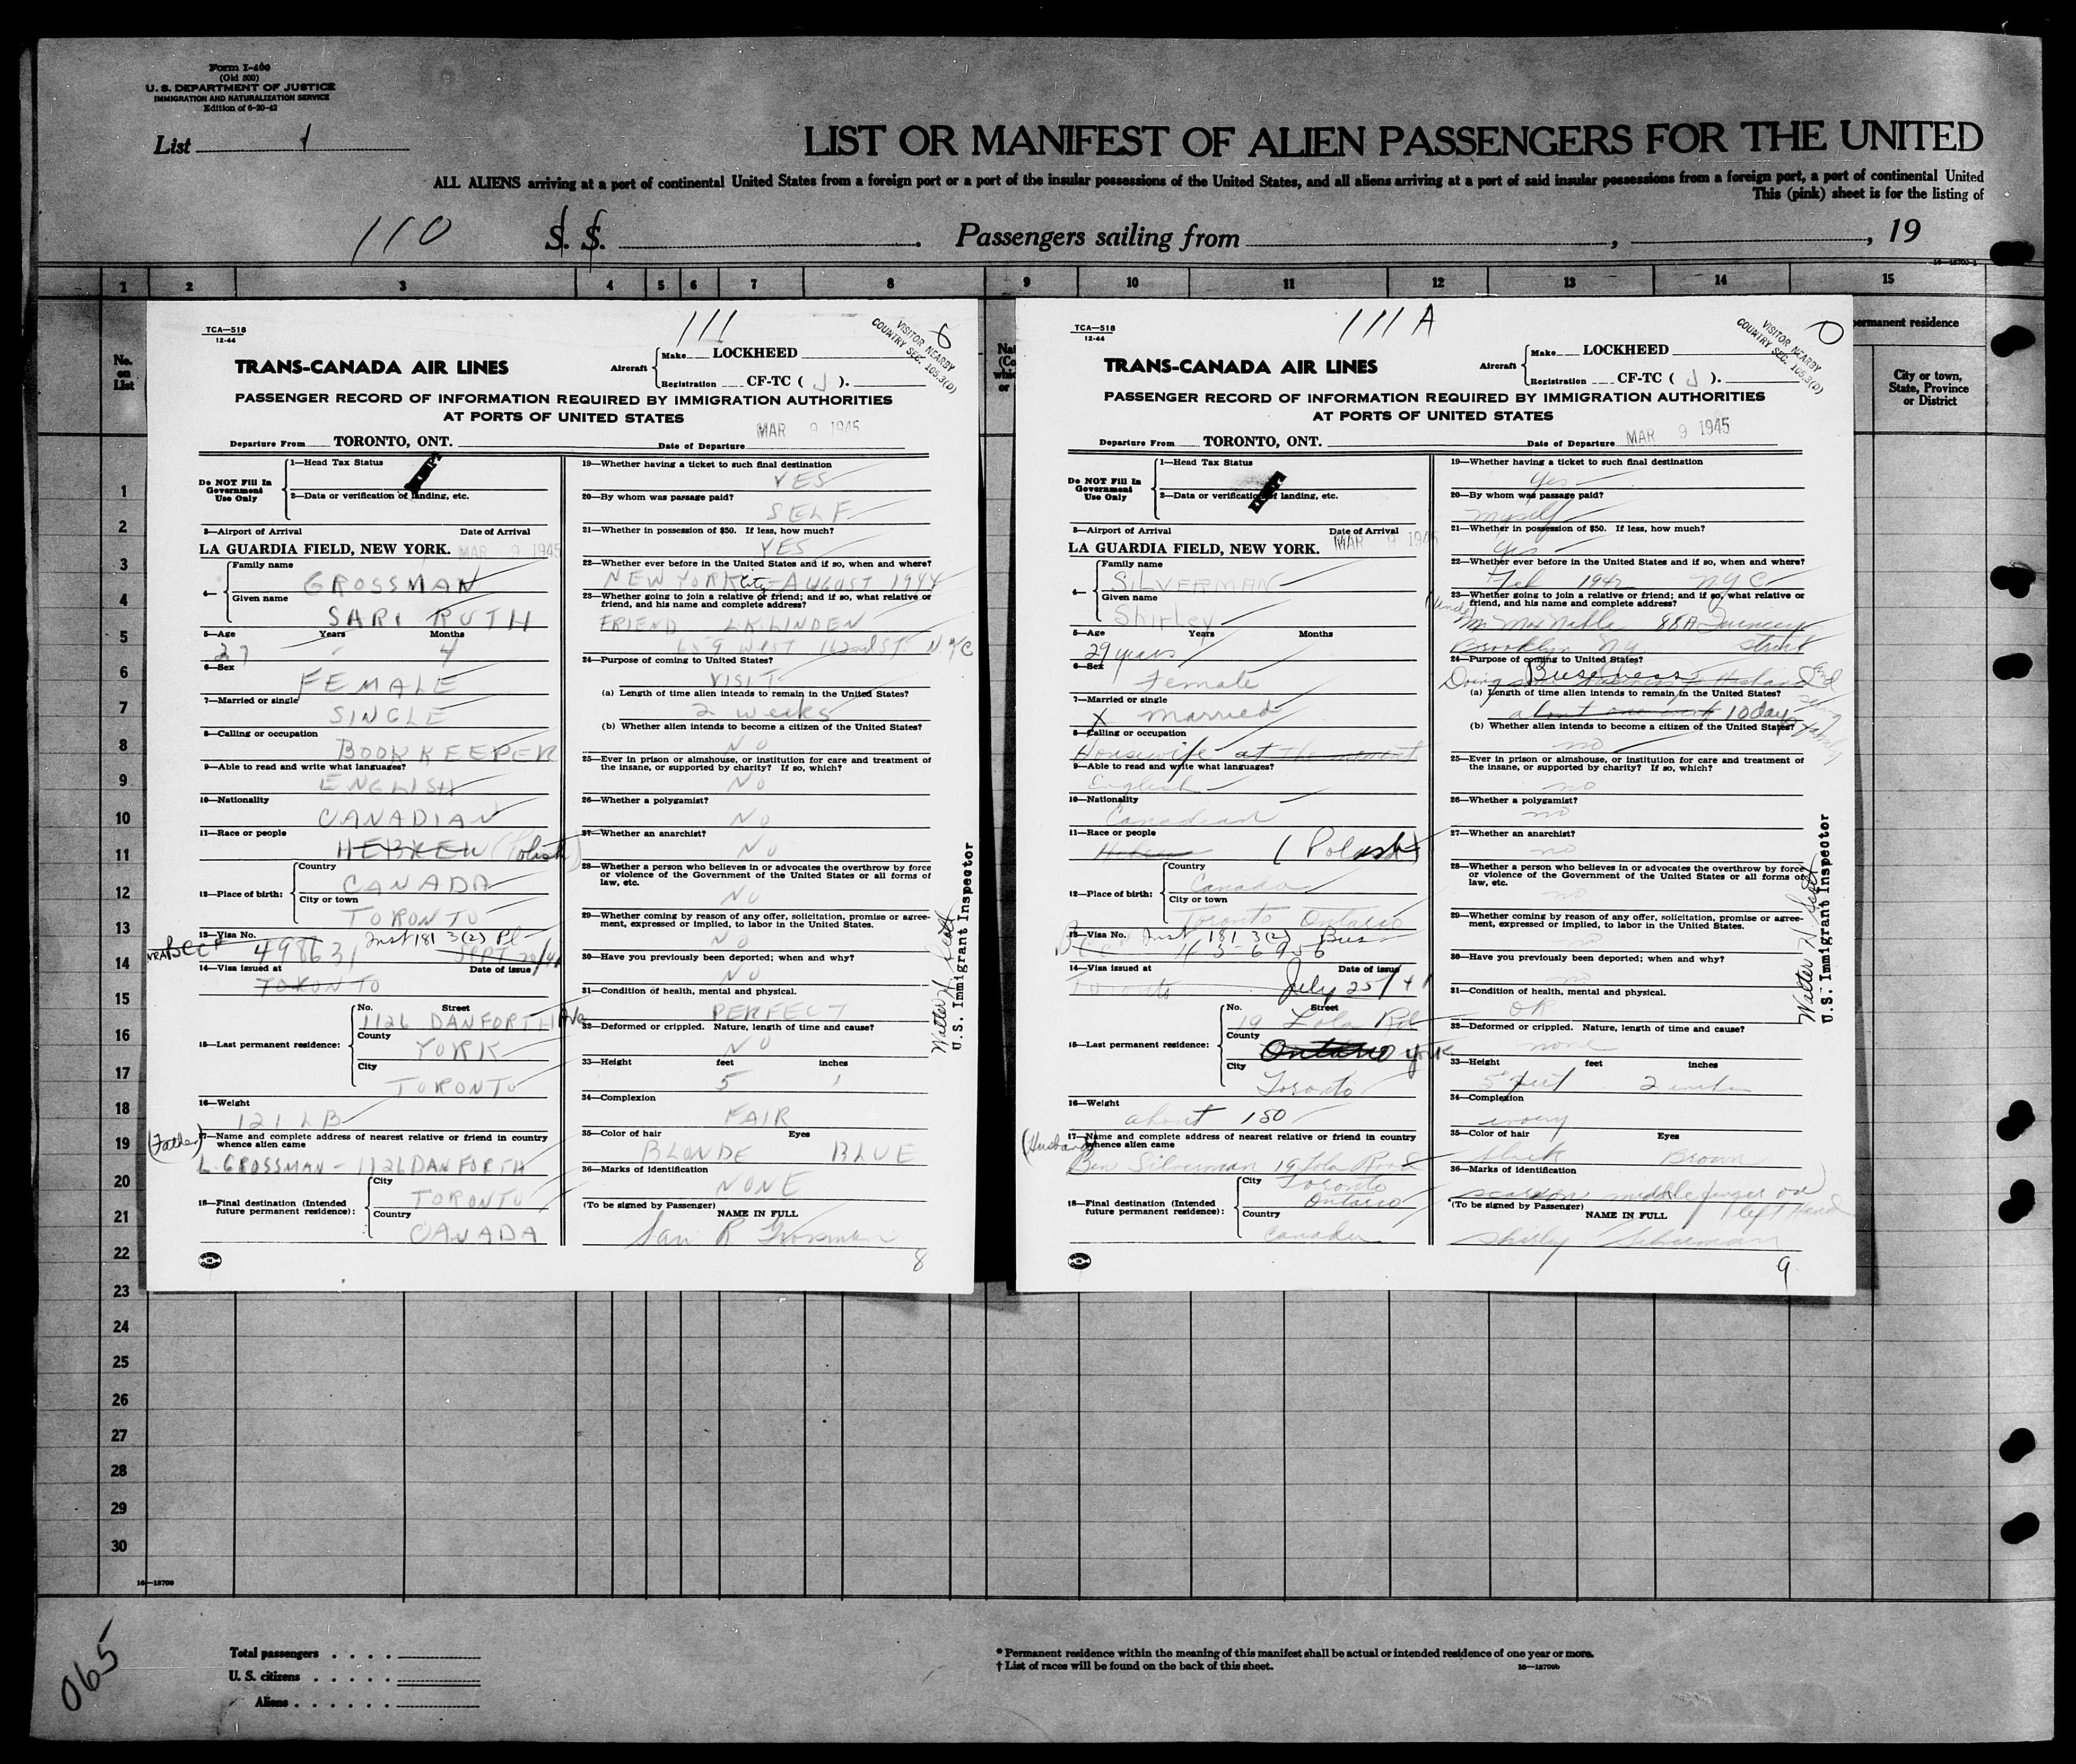 Form I-400
(Old 500)
U. S. DEPARTMENT OF JUSTICE
IMMIGRATION AND NATURALIZATION SERVICE
Edition of 6-20-42
List 1
LIST OR MANIFEST OF ALIEN PASSENGERS FOR THE UNITED
ALL ALIENS arriving at a port of continental United States from a foreign port or a port of the insular possessions of the United States, and all aliens arriving at a port of said insular possessions from a foreign port, a port of continental United
This (pink) sheet is for the listing of
110 S. S. . Passengers sailing from , , 19
1 2 3 4 5 6 7 8 9 10 11 12 13 14 15
No. on List
permanent residence
City or town, State, Province or District
1
2
3
4
5
6
7
8
9
10
11
12
13
14
15
16
17
18
19
20
21
22
23
24
25
26
27
28
29
30
TCA—518
12-44
111
VISITOR NEARBY
COUNTRY SEC. 105.3(D)
TRANS-CANADA AIR LINES
Aircraft Make LOCKHEED
Registration CF-TC ( J ).
PASSENGER RECORD OF INFORMATION REQUIRED BY IMMIGRATION AUTHORITIES
AT PORTS OF UNITED STATES
Departure From TORONTO, ONT. Date of Departure MAR 9 1945
Do NOT Fill In Government Use Only
1—Head Tax Status
2—Data or verification of landing, etc.
3—Airport of Arrival Date of Arrival
LA GUARDIA FIELD, NEW YORK. MAR 9 1945
4— Family name
GROSSMAN
Given name
SARI RUTH
5—Age Years Months
27 4
6—Sex
FEMALE
7—Married or single
SINGLE
8—Calling or occupation
BOOKKEEPER
9—Able to read and write what languages?
ENGLISH
10—Nationality
CANADIAN
11—Race or people
HEBREW (Polish)
12—Place of birth: Country
CANADA
City or town
TORONTO
13—Visa No. Inst 181 3(2) Pl
BCC# 498631 SEPT 20/41
14—Visa issued at Date of issue
TORONTO
15—Last permanent residence: No. Street
1126 DANFORTH Ave
County
YORK
City
TORONTO
16—Weight
121 LB
(Father)
17—Name and complete address of nearest relative or friend in country whence alien came
L. GROSSMAN - 1126 DANFORTH
18—Final destination (Intended future permanent residence): City
TORONTO
Country
CANADA
19—Whether having a ticket to such final destination
YES
20—By whom was passage paid?
SELF
21—Whether in possession of $50. If less, how much?
YES
22—Whether ever before in the United States and if so, when and where?
NEW YORK City - AUGUST 1944
23—Whether going to join a relative or friend; and if so, what relative or friend, and his name and complete address?
FRIEND L.K. LINDEN
659 West 162nd ST. NYC
24—Purpose of coming to United States?
VISIT
(a) Length of time alien intends to remain in the United States?
2 weeks
(b) Whether alien intends to become a citizen of the United States?
NO
25—Ever in prison or almshouse, or institution for care and treatment of the insane, or supported by charity? If so, which?
NO
26—Whether a polygamist?
NO
27—Whether an anarchist?
NO
28—Whether a person who believes in or advocates the overthrow by force or violence of the Government of the United States or all forms of law, etc.
NO
29—Whether coming by reason of any offer, solicitation, promise or agreement, expressed or implied, to labor in the United States.
NO
30—Have you previously been deported; when and why?
NO
31—Condition of health, mental and physical.
PERFECT
32—Deformed or crippled. Nature, length of time and cause?
NO
33—Height feet inches
5 1
34—Complexion
FAIR
35—Color of hair Eyes
BLONDE BLUE
36—Marks of identification
NONE
(To be signed by Passenger) NAME IN FULL
Sari R Grossman
8
Walter H. Scott
U.S. Immigrant Inspector
TCA—518
12-44
111 A
VISITOR NEARBY
COUNTRY SEC. 105.3(D)
TRANS-CANADA AIR LINES
Aircraft Make LOCKHEED
Registration CF-TC ( J ).
PASSENGER RECORD OF INFORMATION REQUIRED BY IMMIGRATION AUTHORITIES
AT PORTS OF UNITED STATES
Departure From TORONTO, ONT. Date of Departure MAR 9 1945
Do NOT Fill In Government Use Only
1—Head Tax Status
2—Data or verification of landing, etc.
3—Airport of Arrival Date of Arrival
LA GUARDIA FIELD, NEW YORK. MAR 9 1945
4— Family name
SILVERMAN
Given name
Shirley
5—Age Years Months
29 years
6—Sex
Female
7—Married or single
X Married
8—Calling or occupation
Housewife at the moment
9—Able to read and write what languages?
English
10—Nationality
Canadian
11—Race or people
Hebrew (Polish)
12—Place of birth: Country
Canada
City or town
Toronto Ontario
13—Visa No. Inst 181 3(2) Bus
14—Visa issued at Date of issue
Toronto July 25/41
15—Last permanent residence: No. Street
19 Lola Rd
County
Ontario York
City
Toronto
16—Weight
about 150
(Husband)
17—Name and complete address of nearest relative or friend in country whence alien came
Ben Silverman 19 Lola Road
18—Final destination (Intended future permanent residence): City
Toronto
Ontario
Country
Canada
19—Whether having a ticket to such final destination
Yes
20—By whom was passage paid?
Myself
21—Whether in possession of $50. If less, how much?
Yes
22—Whether ever before in the United States and if so, when and where?
Feb 1942 N.Y.C
23—Whether going to join a relative or friend; and if so, what relative or friend, and his name and complete address?
(Uncle)
Mr Max Nable 88A
Brooklyn NY Street
24—Purpose of coming to United States?
Business
Doing some business Husband
(a) Length of time alien intends to remain in the United States?
about one week 10 days
(b) Whether alien intends to become a citizen of the United States?
no
25—Ever in prison or almshouse, or institution for care and treatment of the insane, or supported by charity? If so, which?
no
26—Whether a polygamist?
no
27—Whether an anarchist?
no
28—Whether a person who believes in or advocates the overthrow by force or violence of the Government of the United States or all forms of law, etc.
no
29—Whether coming by reason of any offer, solicitation, promise or agreement, expressed or implied, to labor in the United States.
no
30—Have you previously been deported; when and why?
no
31—Condition of health, mental and physical.
OK
32—Deformed or crippled. Nature, length of time and cause?
none
33—Height feet inches
5 feet 2 inches
34—Complexion
ivory
35—Color of hair Eyes
black Brown
36—Marks of identification
scar on middle finger on left Hand
(To be signed by Passenger) NAME IN FULL
Shirley Silverman
9
Walter H. Scott
U.S. Immigrant Inspector
16—18709
065
Total passengers . . . .
U. S. citizens . . . . .
Aliens . . . . . .
* Permanent residence within the meaning of this manifest shall be actual or intended residence of one year or more.
† List of races will be found on the back of this sheet.
16—18709b